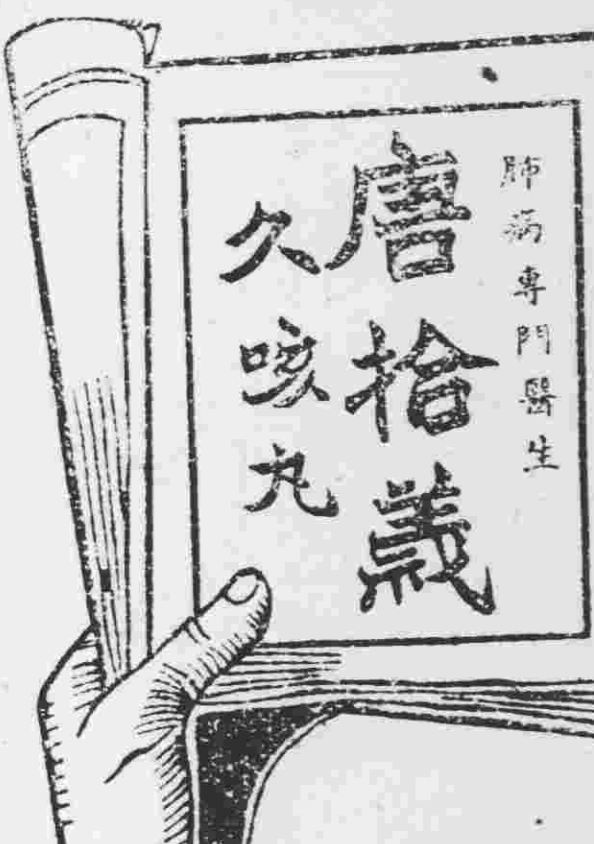 肺病專門醫生
唐拾義
久咳丸